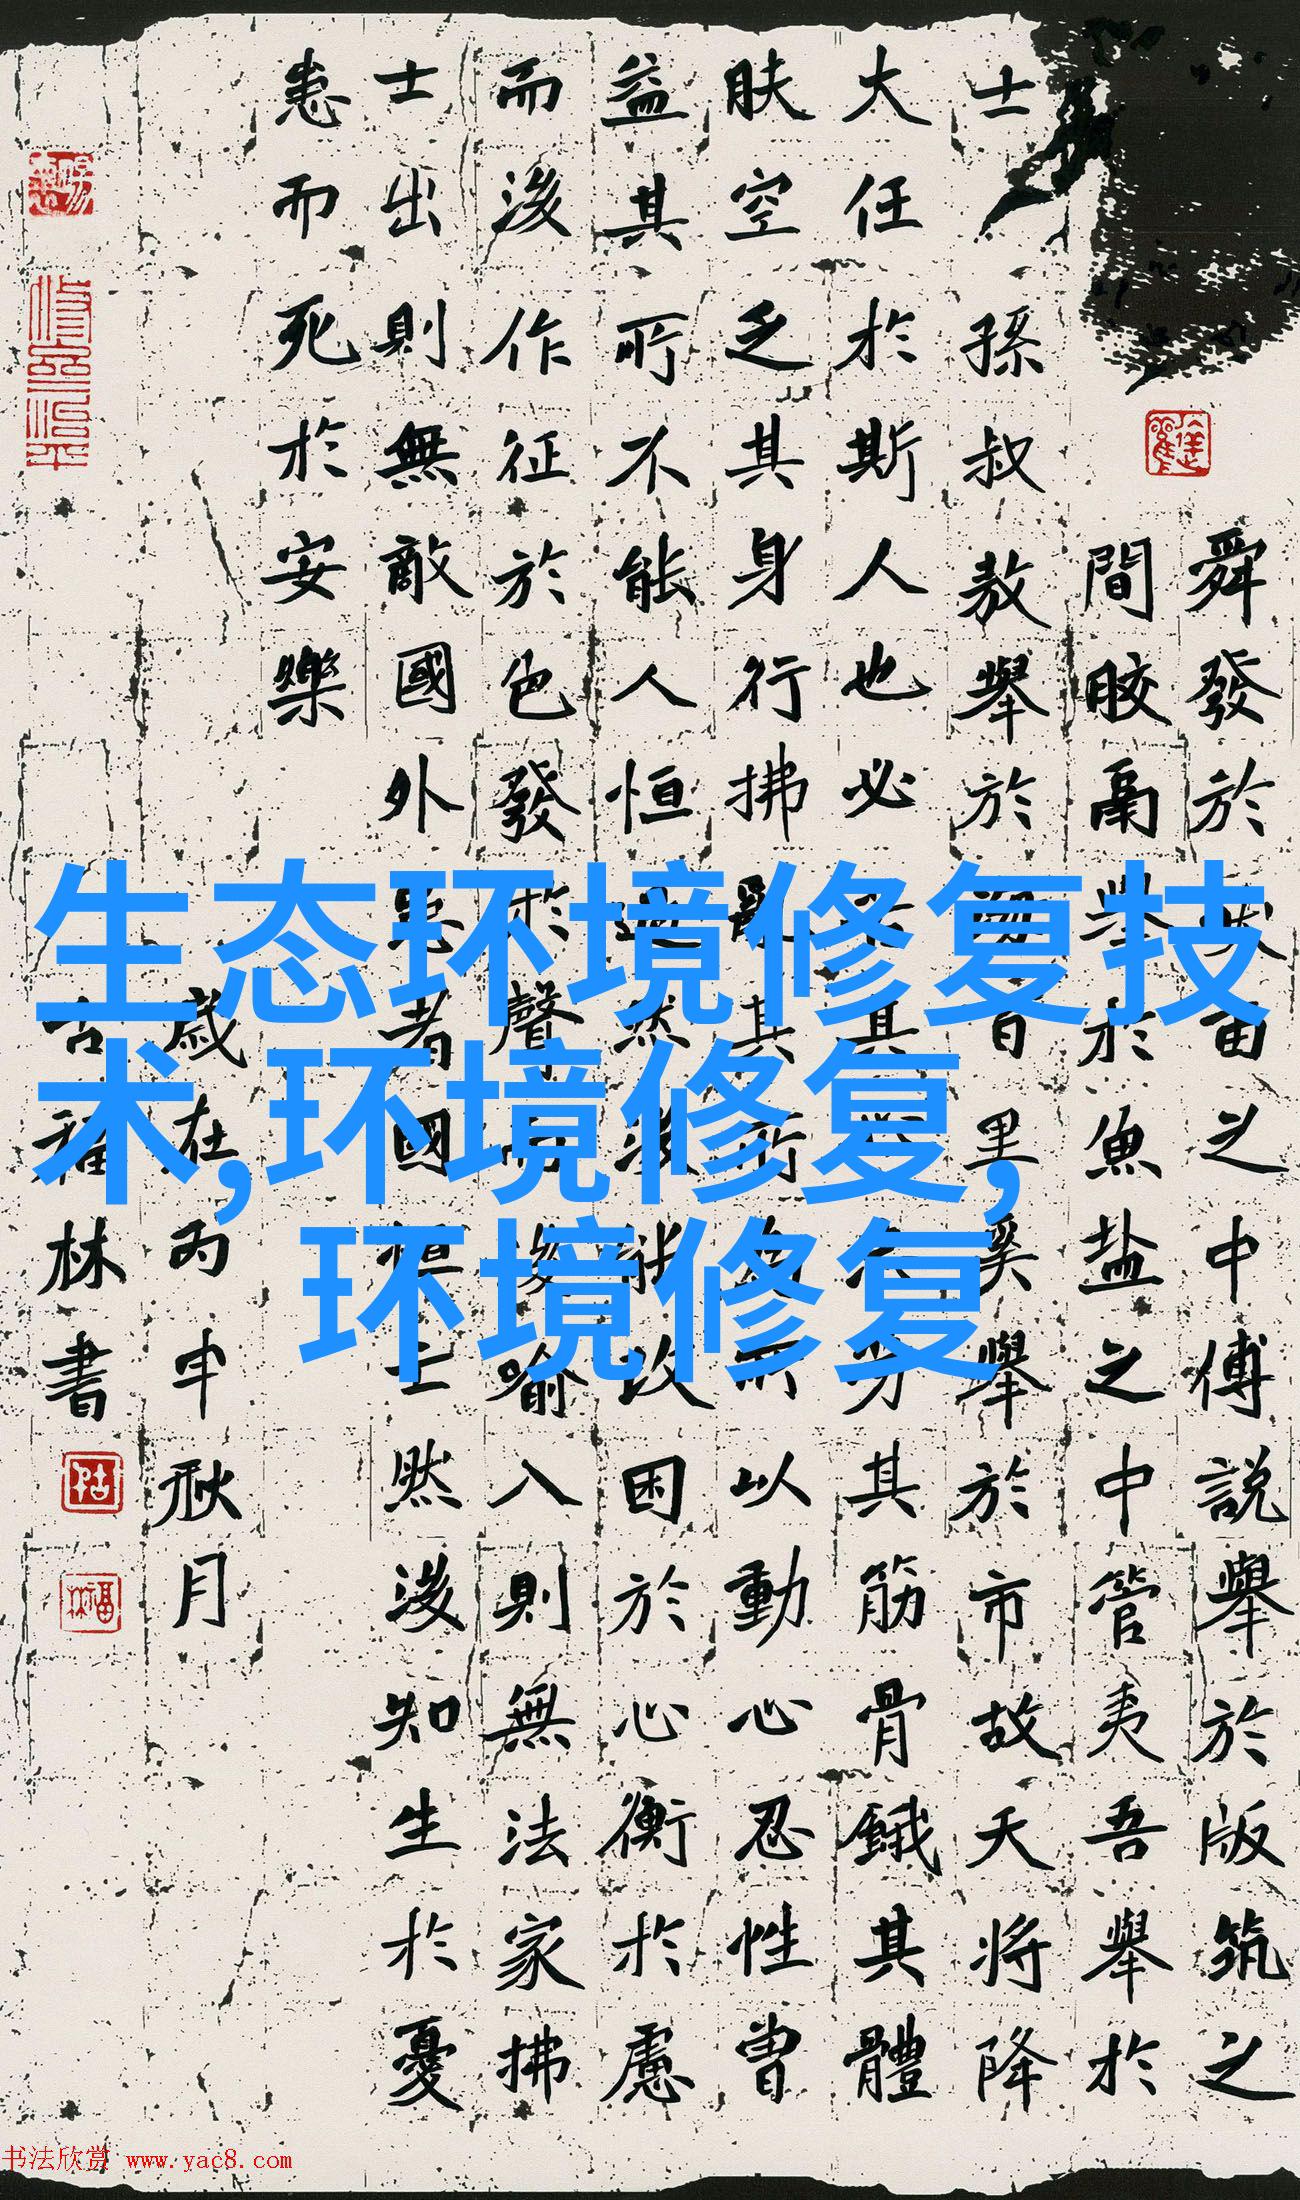 生态环境修复技
术,环境修复,
环境修复
舜發於之中傅說舉於版筑之
間膠鬲舉於魚盐之中管夷吾舉於
士孫叔敖舉於百里奚舉於市故天將降
大任於斯人也必其勞其筋骨餓其體
肤空乏其身行拂亂其所以動心忍性曾
益其所不能人恒過然後能改困於心衡於慮
而後作征於色發於聲後喻入則無法家拂
士出則無敵國外患者國然後知生於憂
患而死於安樂
歲在丙申秋月
古福林書
书法欣赏 www.yac8.com